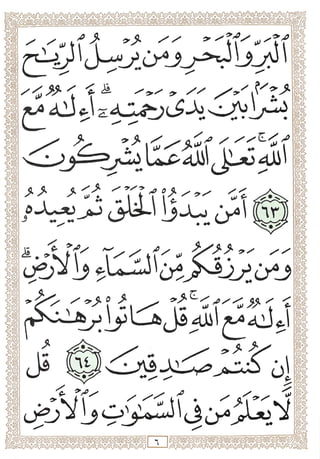 ٱلۡبَرِّ وَٱلۡبَحۡرِ وَمَن يُرۡسِلُ ٱلرِّيَٰحَ
بُشۡرَۢا بَيۡنَ يَدَيۡ رَحۡمَتِهِۦٓۗ أَءِلَٰهٞ مَّعَ
ٱللَّهِۚ تَعَٰلَى ٱللَّهُ عَمَّا يُشۡرِكُونَ
٦٣ أَمَّن يَبۡدَؤُاْ ٱلۡخَلۡقَ ثُمَّ يُعِيدُهُۥ
وَمَن يَرۡزُقُكُم مِّنَ ٱلسَّمَآءِ وَٱلۡأَرۡضِۗ
أَءِلَٰهٞ مَّعَ ٱللَّهِۚ قُلۡ هَاتُواْ بُرۡهَٰنَكُمۡ
إِن كُنتُمۡ صَٰدِقِينَ ٦٤ قُل
لَّا يَعۡلَمُ مَن فِي ٱلسَّمَٰوَٰتِ وَٱلۡأَرۡضِ
٦